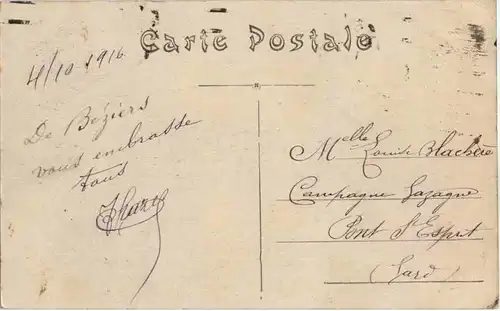 Carte Postale
4/10 1916
De Béziers
vous embrasse
tous
Melle Louise Blachère
Campagne Gazagne
Pont St Esprit
(Gard)